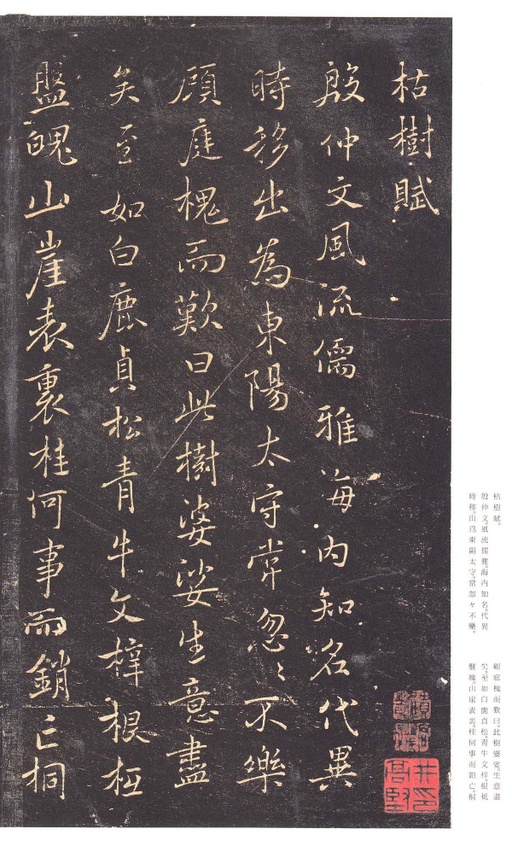 枯樹賦
殷仲文風流儒雅海内知名代異
時移出為東陽太守常忽〻不樂
顧庭槐而歎曰此樹婆娑生意盡
矣至如白鹿貞松青牛文梓根柢
盤魄山崖表裏桂何事而銷亡桐
枯樹賦。
殷仲文風流儒雅、海内知名。代異
時移、出爲東陽太守。常忽々不樂。
顧庭槐而歎曰、此樹婆娑、生意盡
矣。至如白鹿貞松、青牛文梓、根柢
盤魄、山崖表裏。桂何事而銷亡、桐